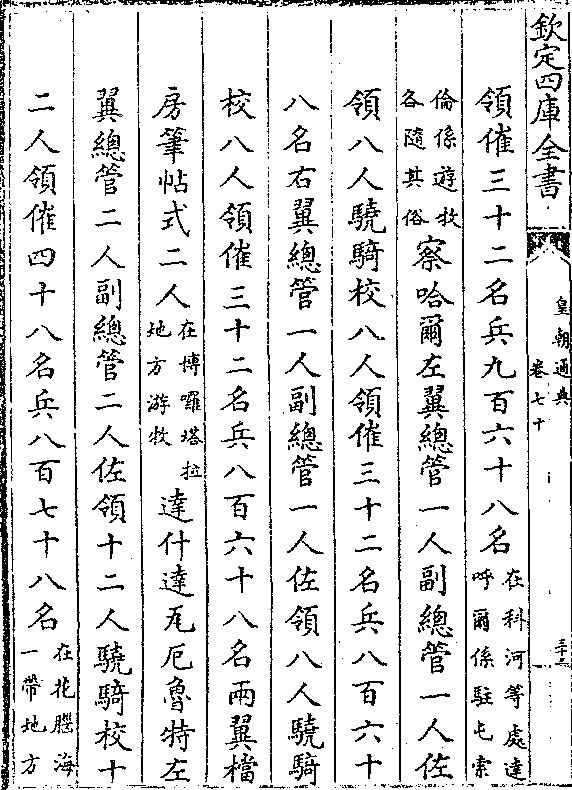 欽定四庫全書
皇朝通典
卷七十
三十三
領催三十二名兵九百六十八名在科河等處達呼爾係駐屯索
倫係遊牧各隨其俗察哈爾左翼總管一人副總管一人佐
領八人驍騎校八人領催三十二名兵八百六十
八名右翼總管一人副總管一人佐領八人驍騎
校八人領催三十二名兵八百六十八名兩翼檔
房筆帖式二人在博囉塔拉地方游牧達什達瓦厄魯特左
翼總管二人副總管二人佐領十二人驍騎校十
二人領催四十八名兵八百七十八名在花騰海一帶地方